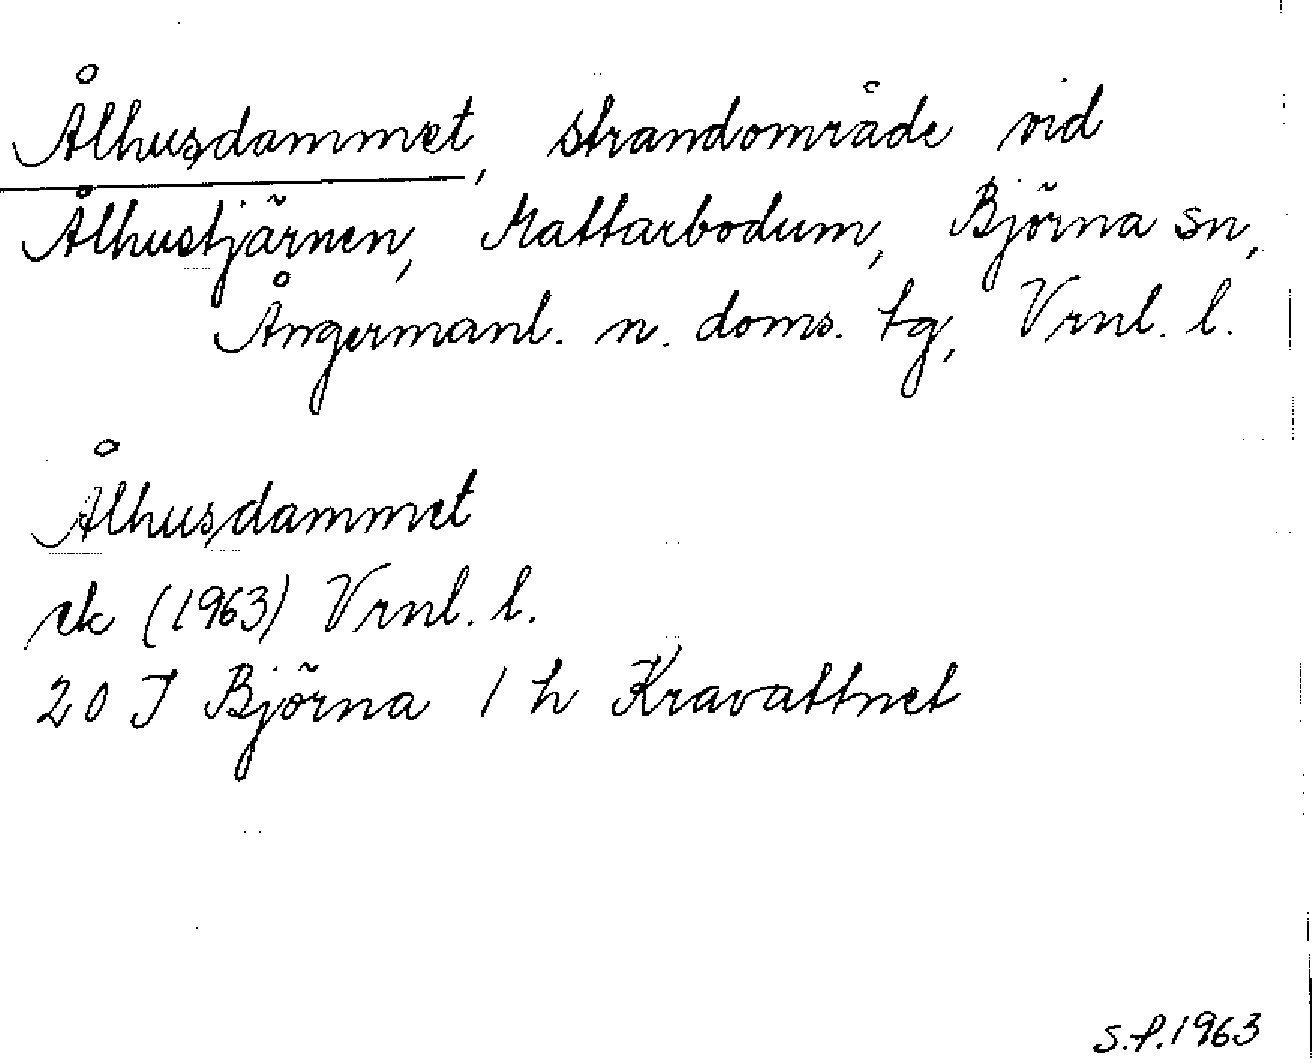 Ålhusdammet, strandområde vid
Ålhustjärnen, Mattarbodum, Björna sn,
Ångermanl. n. doms. tg, Vrnl. l.
Ålhusdammet
ek (1963) Vrnl. l.
20 J Björna 1 h Kravattnet
S.P. 1963